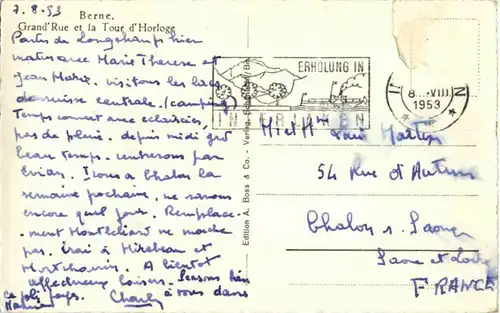 7.8.53
Berne.
Grand'Rue et la Tour d'Horloge
Partis de Longchamp hier
matin avec Marie Thérèse et
Jean Marie. visitons les lacs
de suisse centrale. (camping)
Temps couvert avec eclaircies,
pas de pluie. depuis midi grd
beau temps. rentrerons par
Evian. Irons a Chalon la
semaine prochaine, ne savons
encore quel jour. Remplace-
ment Montbeliard ne marche
pas. irai à Mirebeau et
Montchanin. A bientot
affectueux baisers. Pensons bien
à vous dans
ce joli pays.
Charly
Edition A. Boss & Co. - Verlag
ERHOLUNG IN
INTERLAKEN
8. VIII
1953
M et Mme Louis
54 Rue d'Autun
Chalon s. Saone
Saone et Loire
FRANCE